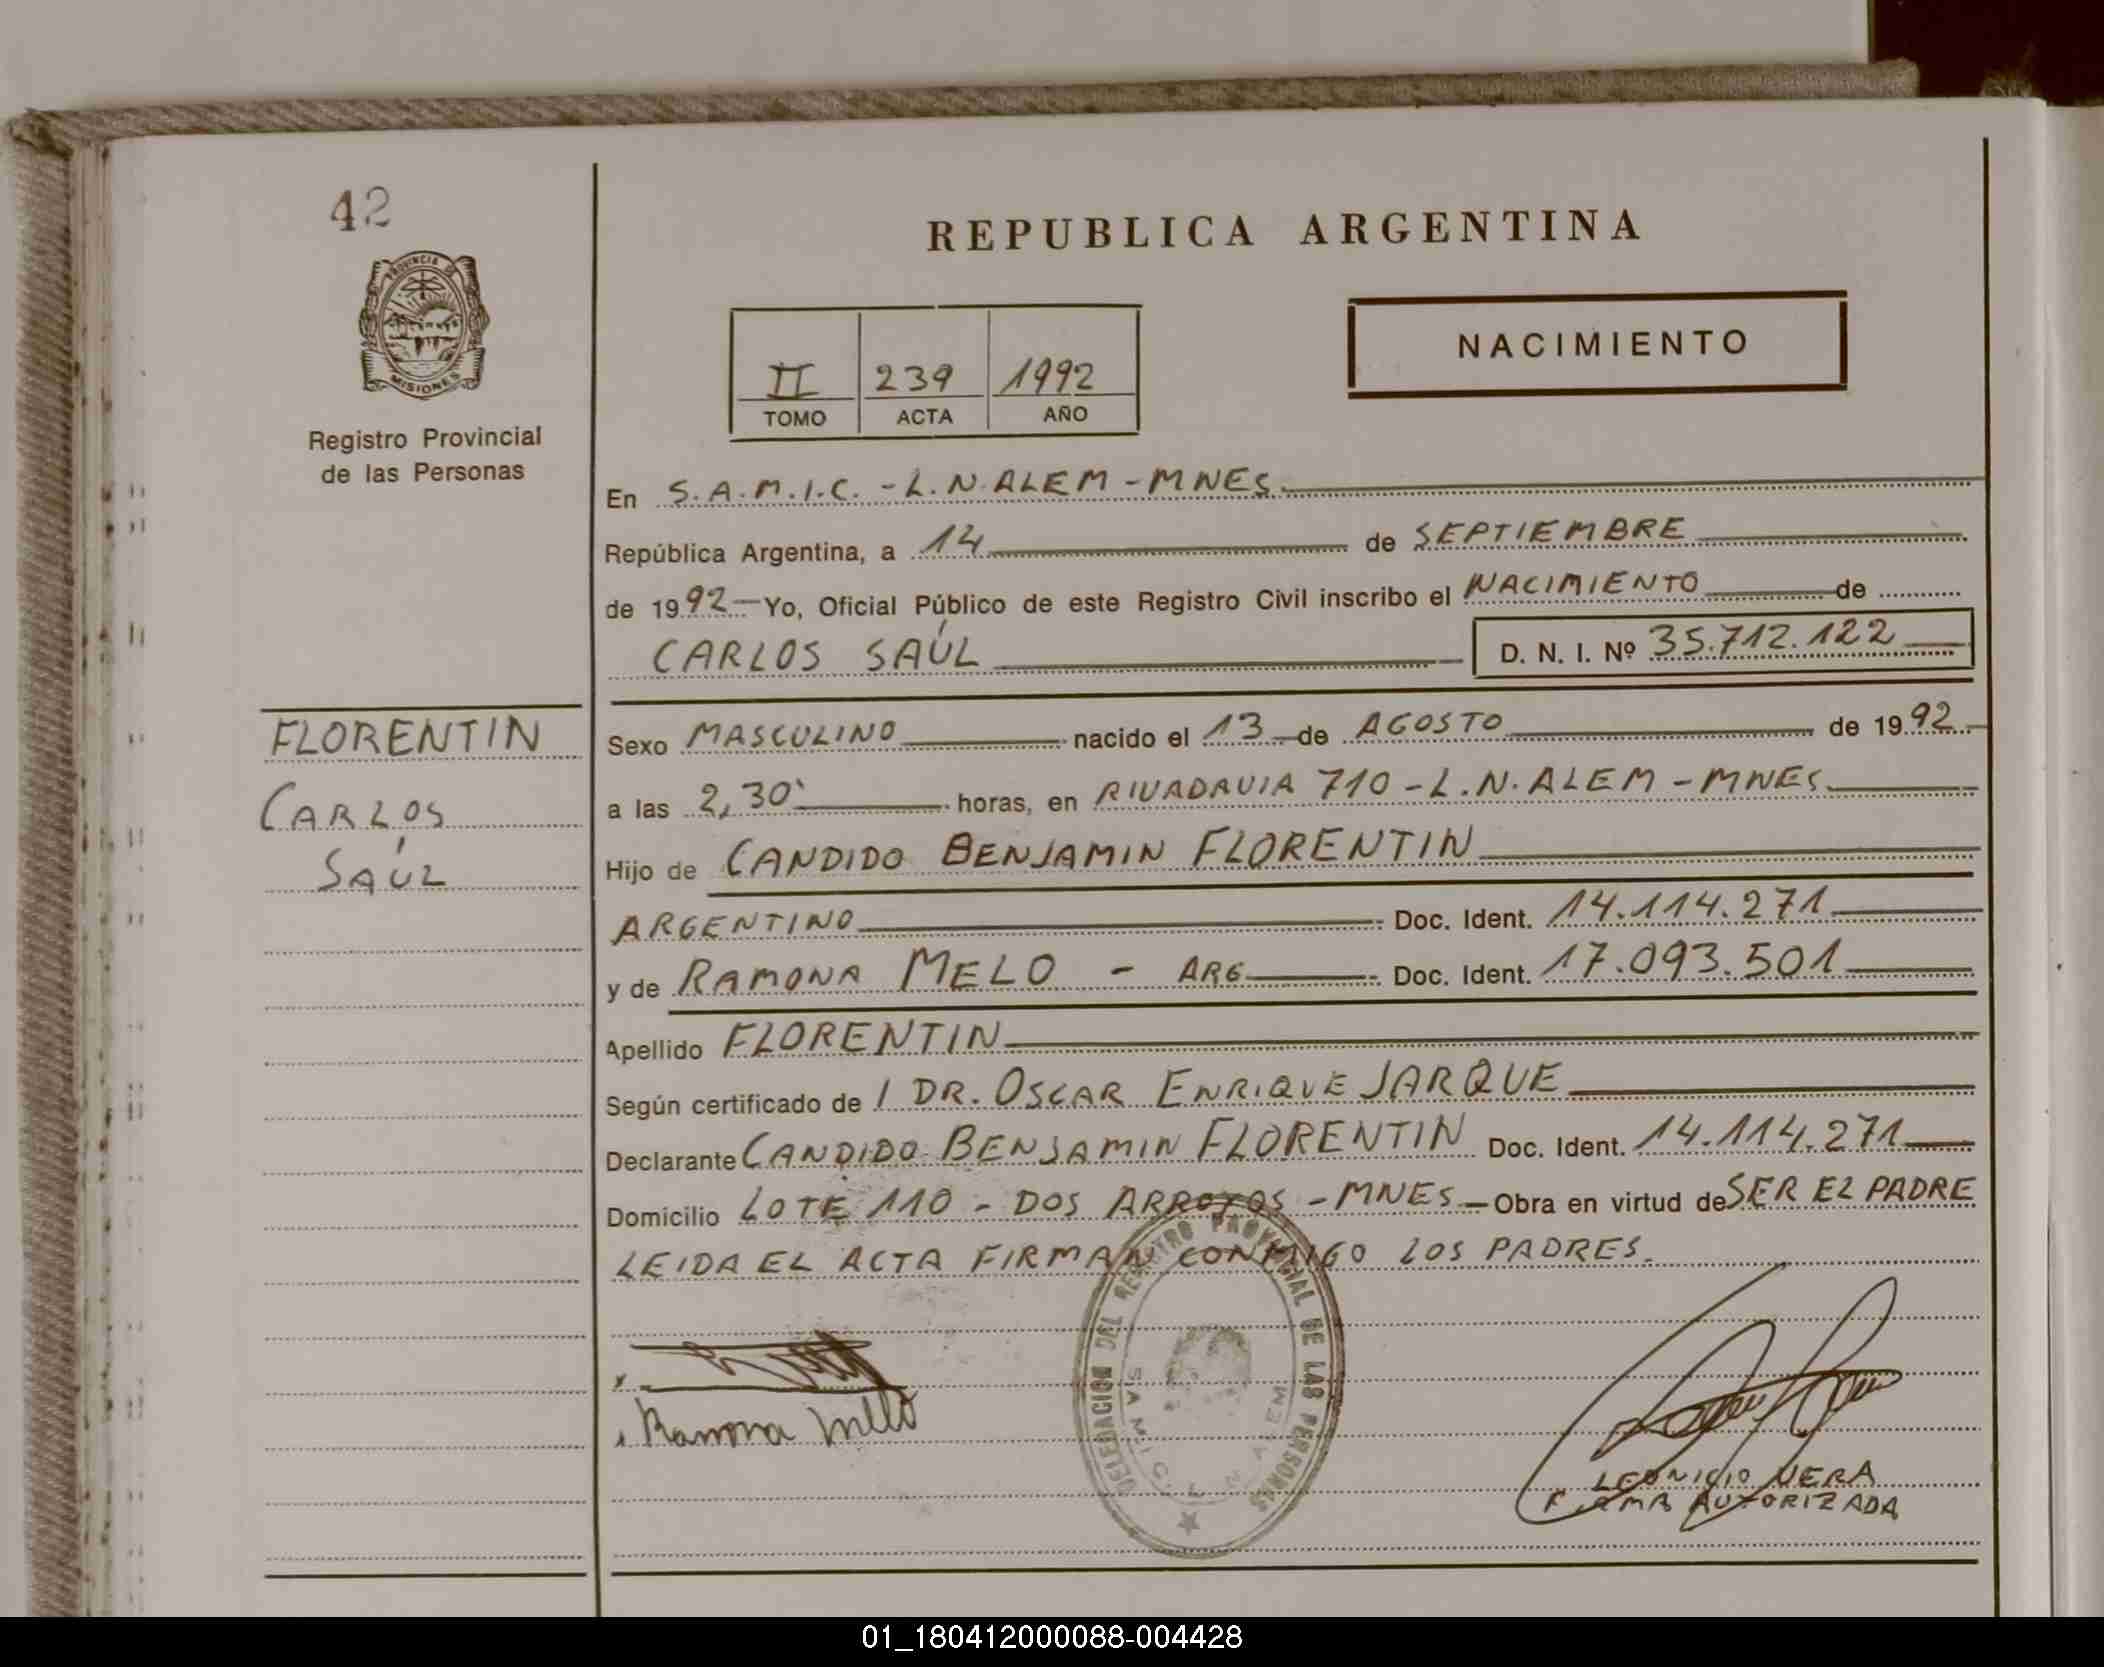 42
PROVINCIA DE
MISIONES
Registro Provincial
de las Personas
FLORENTIN
CARLOS
SAÚL
REPUBLICA ARGENTINA
II 239 1992
TOMO ACTA AÑO
NACIMIENTO
En S.A.M.I.C. - L.N. ALEM - MNES
República Argentina, a 14 de SEPTIEMBRE
de 1992 Yo, Oficial Público de este Registro Civil inscribo el NACIMIENTO de
CARLOS SAÚL D. N. I. Nº 35.712.122
Sexo MASCULINO nacido el 13 de AGOSTO de 1992
a las 2,30' horas, en RIVADAVIA 710 - L.N. ALEM - MNES
Hijo de CANDIDO BENJAMIN FLORENTIN
ARGENTINO Doc. Ident. 14.114.271
y de RAMONA MELO - ARG Doc. Ident. 17.093.501
Apellido FLORENTIN
Según certificado de / DR. OSCAR ENRIQUE JARQUE
Declarante CANDIDO BENJAMIN FLORENTIN Doc. Ident. 14.114.271
Domicilio LOTE 110 - DOS ARROYOS - MNES Obra en virtud de SER EL PADRE
LEIDA EL ACTA FIRMAN CONMIGO LOS PADRES.
Ramona Mello
DELEGACION DEL REGISTRO PROVINCIAL DE LAS PERSONAS
S.A.M.I.C. L.N. ALEM
LEONICIO VERA
FIRMA AUTORIZADA
01_180412000088-004428